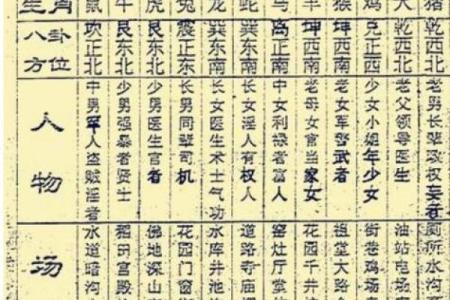 生肖 鼠 牛 虎 兔 龙 蛇 马 羊 猴 鸡 犬 猪
八卦方位 坎正北 艮东北 艮东北 震正东 巽东南 巽东南 离正南 坤西南 坤西南 兑正西 乾西北 乾西北
人物 中男军人盗贼淫者 少男强暴者贤士 少男医生官者 长男同辈司机 长女医生术士气功 长女淫人有权人 中女利禄者富人 老母女官当家女 老女军警武者 少女小姐年少女 老父领导医生 老男长辈政权妄者
场 水道暗沟 稻田宫殿 佛地深山 花园门窗 水库井池 道路寺庙 窑灶厅堂 花园千井 祖堂大路 街巷鸡场 油站电场 厕所水沟